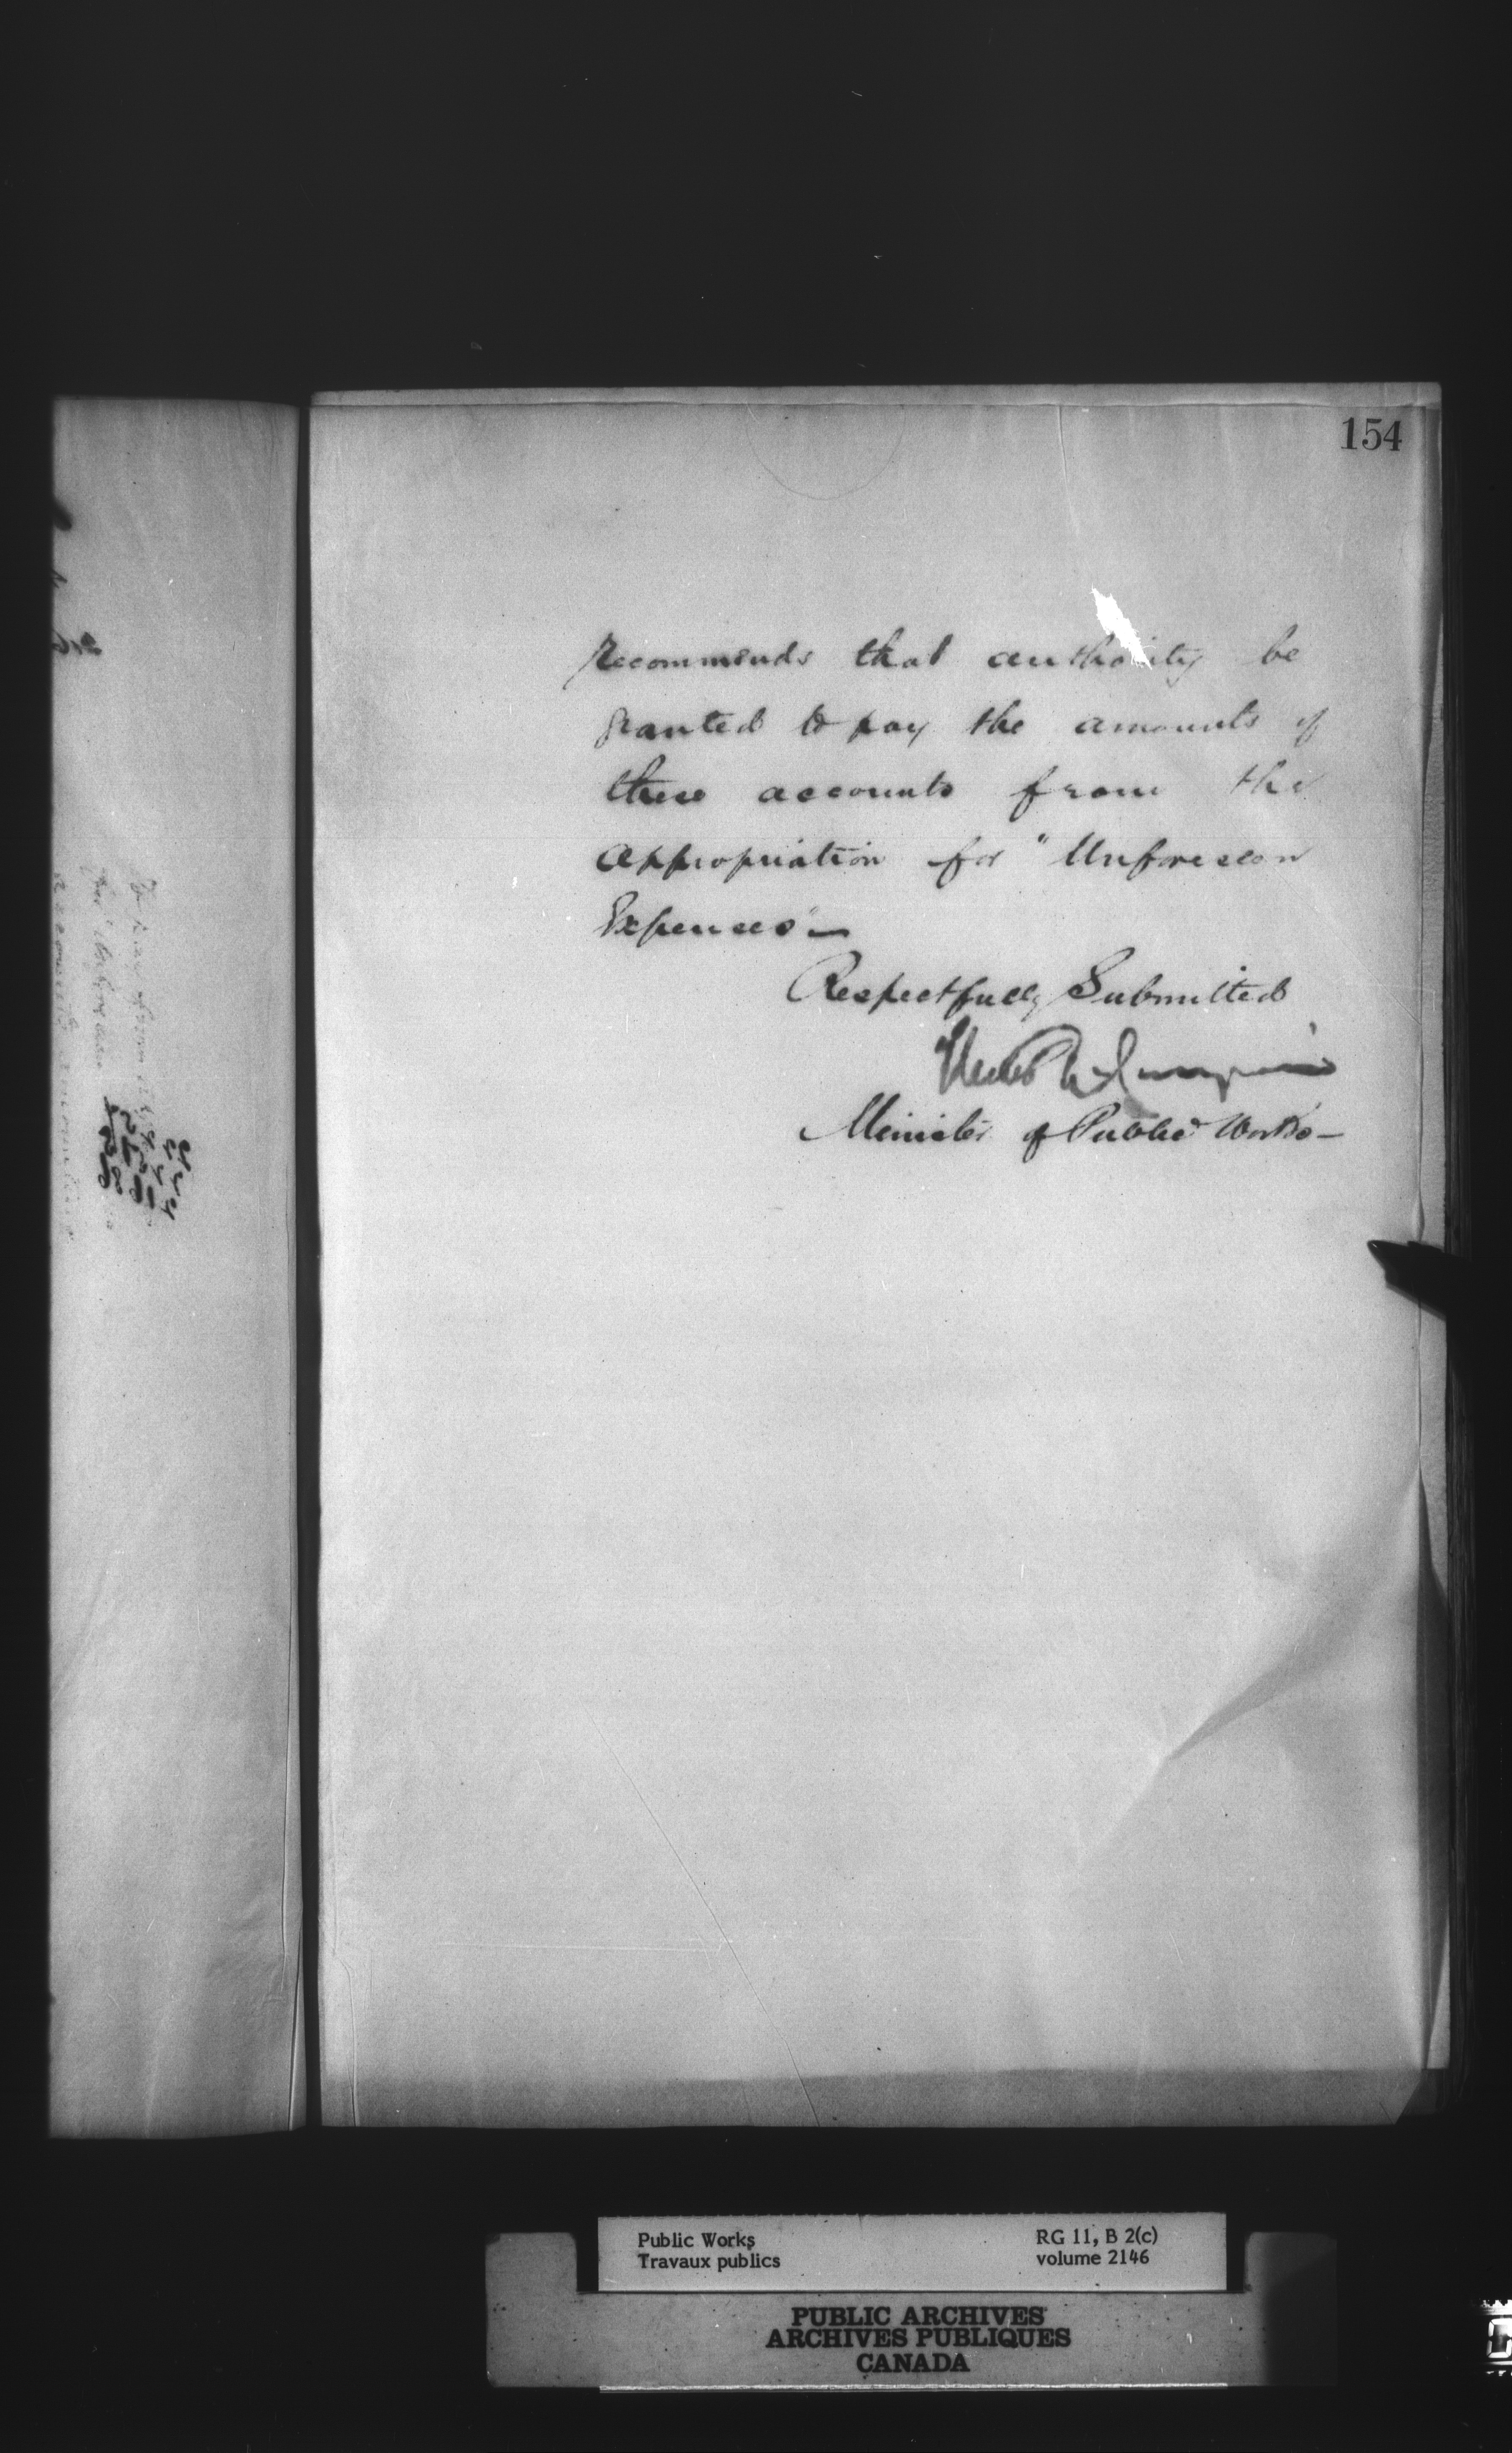 154
recommends that authority be
granted to pay the amounts of
these accounts from the
Appropriation for "Unforeseen
Expenses" —
Respectfully Submitted
Minister of Public Works —
Public Works
Travaux publics
RG 11, B 2(c)
volume 2146
PUBLIC ARCHIVES
ARCHIVES PUBLIQUES
CANADA